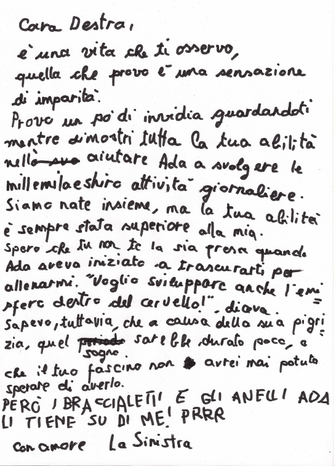 Cara Destra,
è una vita che ti osservo,
quella che provo è una sensazione
di imparità.
Provo un po' di invidia guardandoti
mentre dimostri tutta la tua abilità
nello aiutare Ada a svolgere le
millemila attività giornaliere.
Siamo nate insieme, ma la tua abilità
è sempre stata superiore alla mia.
Spero che tu non te la sia presa quando
Ada aveva iniziato a trascurarti per
allenarmi. "Voglio sviluppare anche l'emi=
sfero destro del cervello!", diceva.
Sapevo, tuttavia, che a causa della sua pigri=
zia, quel sogno sarebbe durato poco, e
che il tuo fascino non avrei mai potuto
sperare di averlo.
PERÒ I BRACCIALETTI E GLI ANELLI ADA
LI TIENE SU DI ME! PRRR
con amore La Sinistra